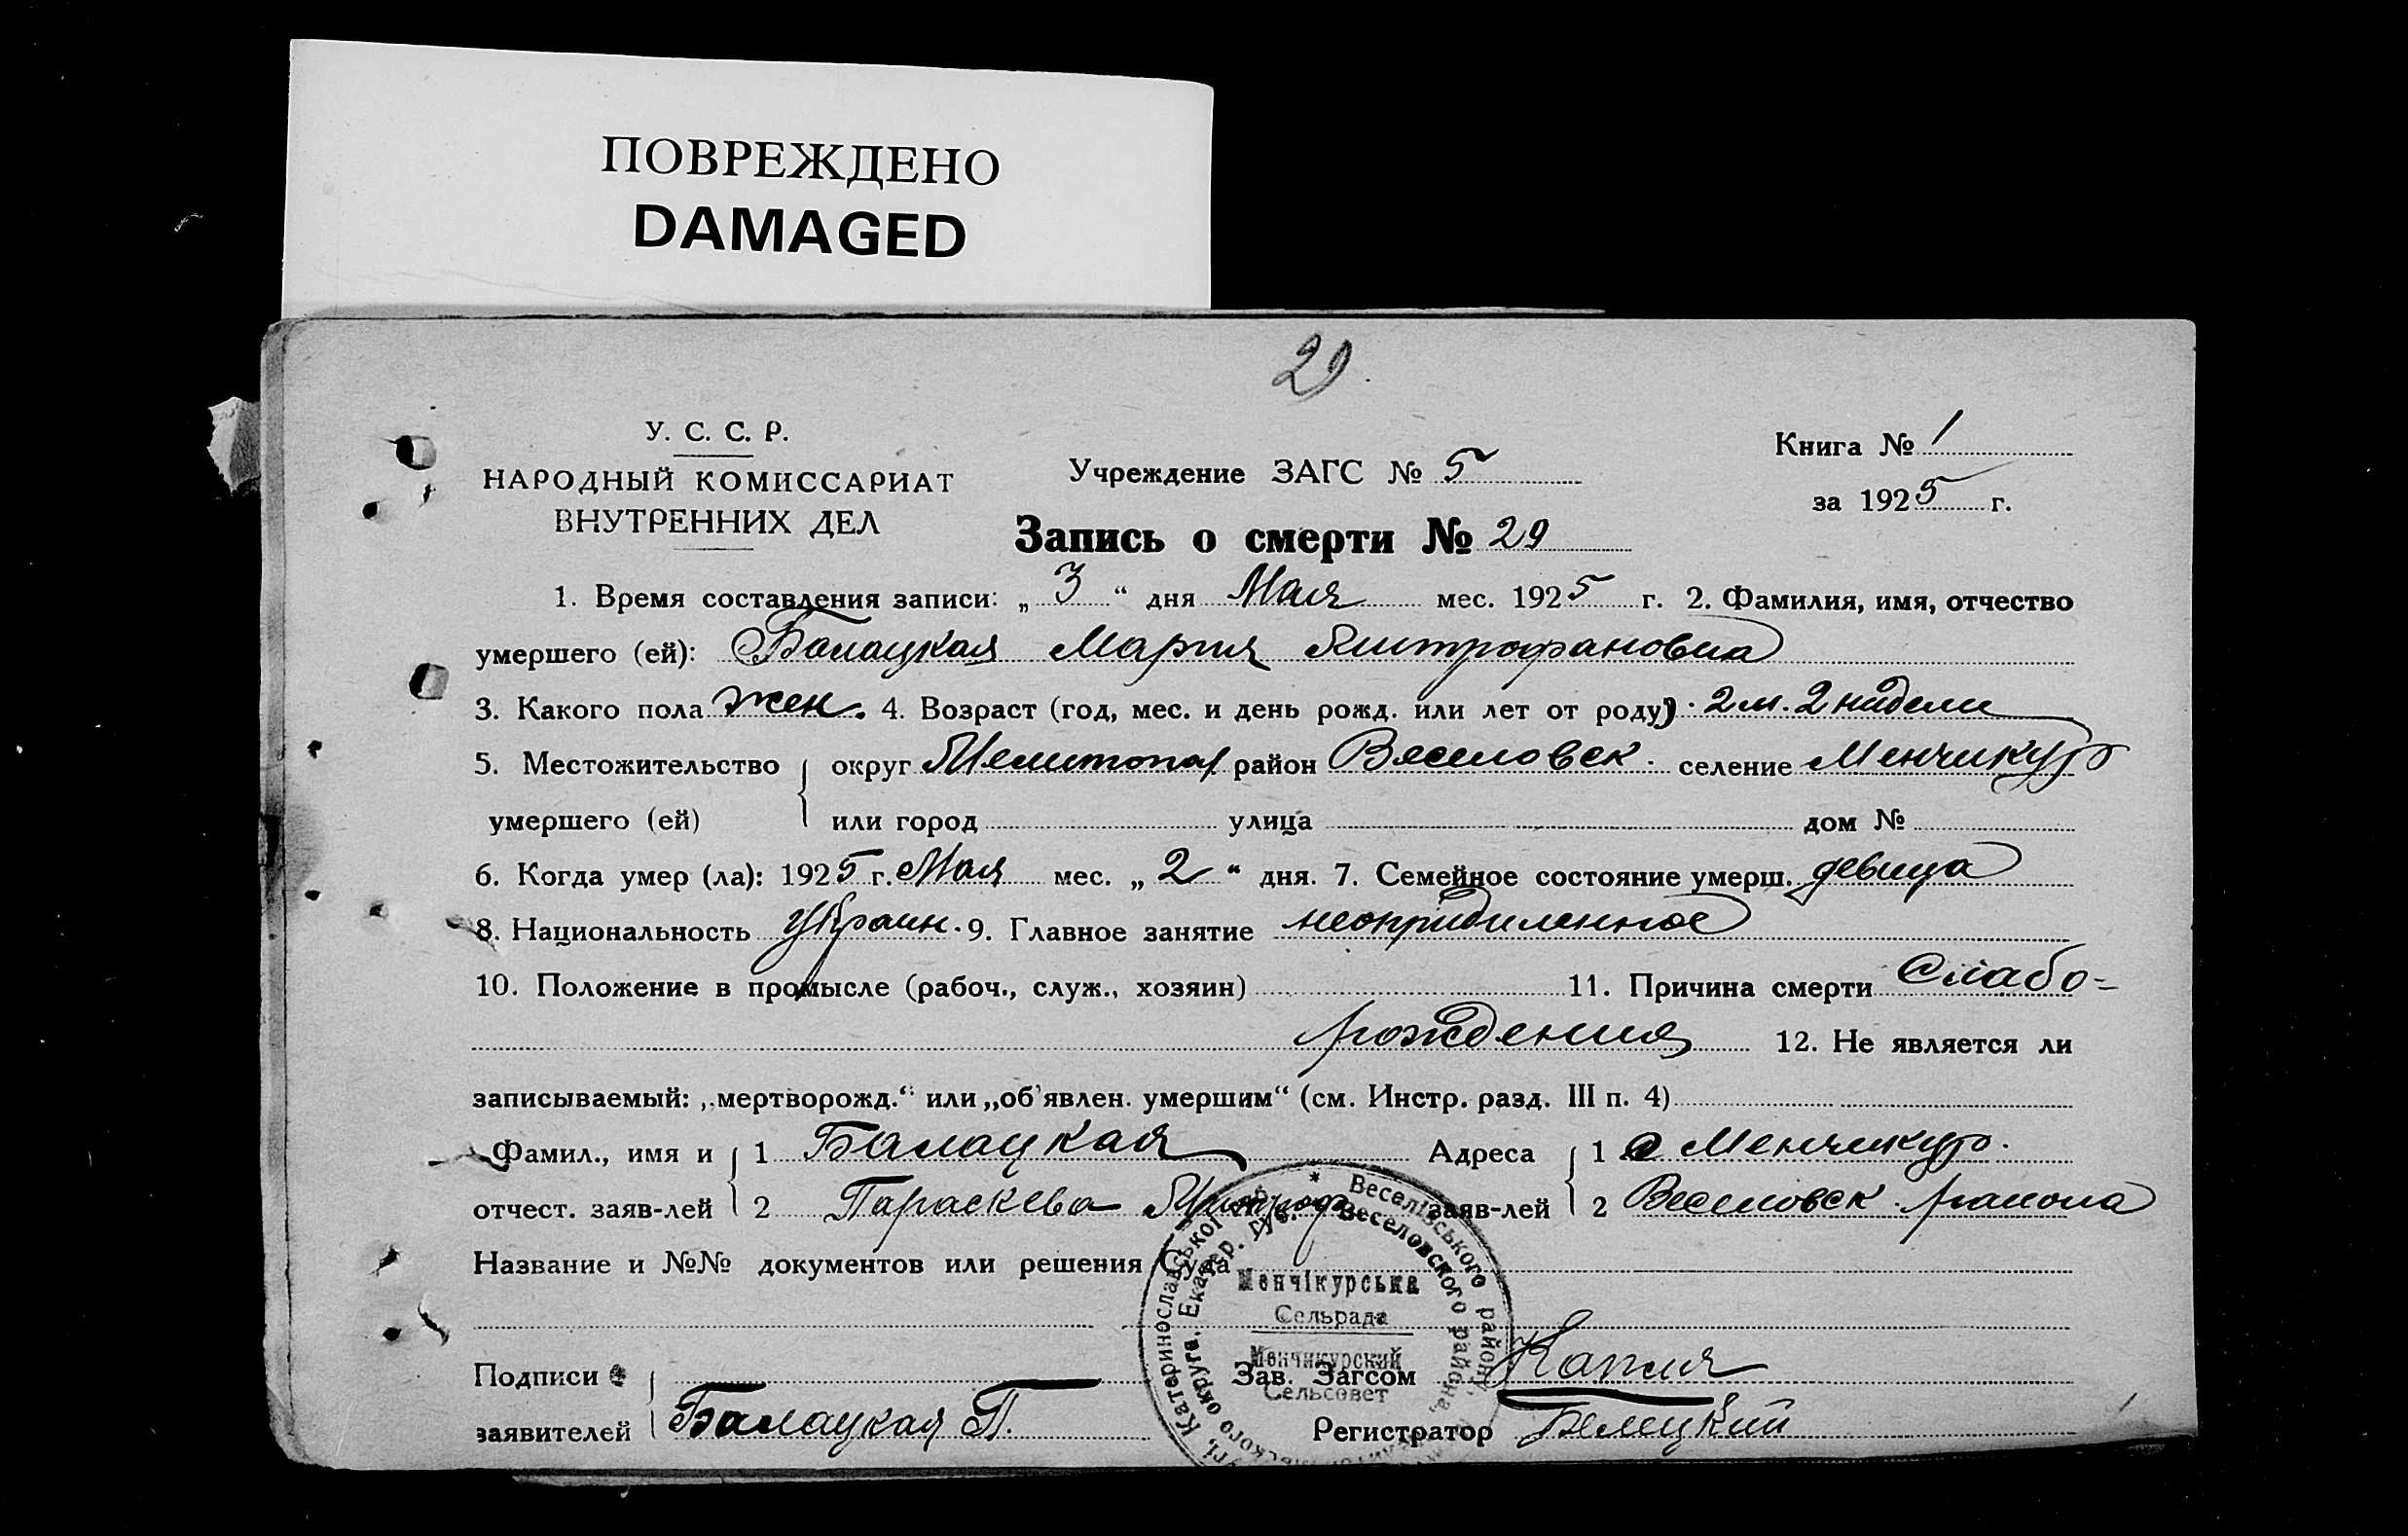 ПОВРЕЖДЕНО
DAMAGED
29.
У. С. С. Р.
НАРОДНЫЙ КОМИССАРИАТ
ВНУТРЕННИХ ДЕЛ
Учреждение ЗАГС № 5
Книга № 1
за 1925 г.
Запись о смерти № 29
1. Время составления записи: „ 3 “ дня Мая мес. 1925 г. 2. Фамилия, имя, отчество
умершего (ей): Балацкая Мария Митрофановна
3. Какого пола жен. 4. Возраст (год, мес. и день рожд. или лет от роду) 2 м. 2 нидели
5. Местожительство умершего (ей) округ Мелитопол район Веселовск. селение Менчикур
или город улица дом №
6. Когда умер (ла): 1925 г. Мая мес. „ 2 “ дня. 7. Семейное состояние умерш. девица
8. Национальность Украин. 9. Главное занятие неопридиленное
10. Положение в промысле (рабоч., служ., хозяин) 11. Причина смерти Слабо-
рождения 12. Не является ли
записываемый: „мертворожд.“ или „об'явлен. умершим“ (см. Инстр. разд. III п. 4)
Фамил., имя и 1 Балацкая Адреса 1 с Менчикур.
отчест. заяв-лей 2 Параскева заяв-лей 2 Веселовск. района
Название и №№ документов или решения Суда
Подписи Зав. Загсом
заявителей Балацкая П. Регистратор Белецкий
Веселівського району
Катеринославської
Екатер. губ. Веселовского района,
округа,
Менчікурська
Сельрада
Менчикурский
Сельсовет